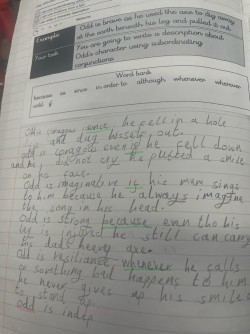 Example
Odd is brave as he used the axe to dig away
at the earth beneath his leg and pulled it out.
Your task
You are going to write a description about
Odd's character using subordinating
conjunctions.
Word bank
because as since in order to although whenever wherever
until if
Odd is once, he fell in a hole
and dug hisself out.
odd is even he fell down
and he did not cry he plasted a smile
on his face.
Odd is imaginative if his mum sings
to him because he always imagine
the song in his head.
Odd is strong because even tho his
leg is injured he still can carry
his dads heavy axe.
Odd is resiliance whenever he falls
or somthing bad happens to him
he never gives up his smile
to stand up
Odd is indep